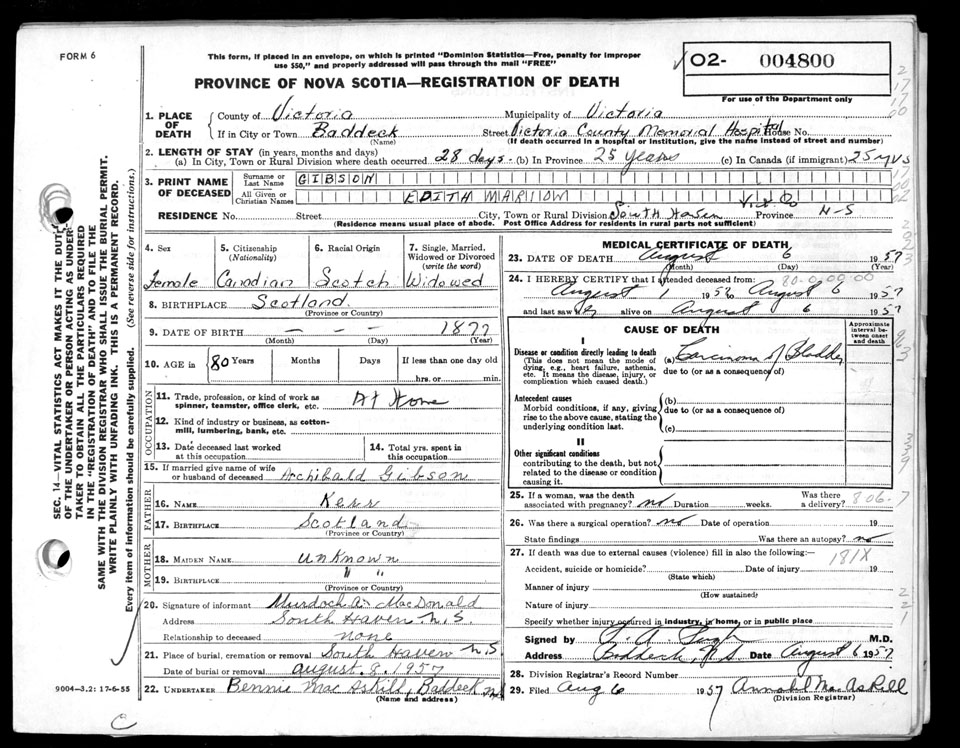 FORM 6
This form, if placed in an envelope, on which is printed "Dominion Statistics—Free, penalty for improper
use $50," and properly addressed will pass through the mail "FREE"
PROVINCE OF NOVA SCOTIA—REGISTRATION OF DEATH
O2- 004800
For use of the Department only
1. PLACE OF DEATH
County of Victoria Municipality of Victoria
If in City or Town Baddeck Street Victoria County Memorial Hospital House No.
(Name) (If death occurred in a hospital or institution, give the name instead of street and number)
2. LENGTH OF STAY (in years, months and days)
(a) In City, Town or Rural Division where death occurred 28 days - (b) In Province 25 years (c) In Canada (if immigrant) 25 yrs
3. PRINT NAME OF DECEASED
Surname or Last Name GIBSON
All Given or Christian Names EDITH MARION
RESIDENCE No. Street City, Town or Rural Division South Haven Vict Co Province N-S
(Residence means usual place of abode. Post Office Address for residents in rural parts not sufficient)
4. Sex
Female
5. Citizenship (Nationality)
Canadian
6. Racial Origin
Scotch
7. Single, Married, Widowed or Divorced (write the word)
Widowed
8. BIRTHPLACE Scotland
(Province or Country)
9. DATE OF BIRTH — — — 1877
(Month) (Day) (Year)
10. AGE in 80 Years Months Days If less than one day old
hrs. or min.
OCCUPATION
11. Trade, profession, or kind of work as
spinner, teamster, office clerk, etc. At Home
12. Kind of industry or business, as cotton-
mill, lumbering, bank, etc.
13. Date deceased last worked
at this occupation
14. Total yrs. spent in
this occupation
15. If married give name of wife
or husband of deceased Archibald Gibson
FATHER
16. Name Kerr
17. Birthplace Scotland
(Province or Country)
MOTHER
18. Maiden Name unknown
19. Birthplace " "
(Province or Country)
20. Signature of informant Murdoch A. MacDonald
Address South Haven N.S.
Relationship to deceased none
21. Place of burial, cremation or removal South Haven N.S.
Date of burial or removal august. 8. 1957
22. Undertaker Bennie Mac Askill, Baddeck NS
(Name and address)
MEDICAL CERTIFICATE OF DEATH
23. DATE OF DEATH August 6 1957
(Month) (Day) (Year)
24. I HEREBY CERTIFY that I attended deceased from: 80-0-00-00
August 1 1956 August 6 1957
and last saw alive on August 6 1957
CAUSE OF DEATH
Approximate interval between onset and death
I
Disease or condition directly leading to death
(This does not mean the mode of
dying, e.g., heart failure, asthenia,
etc. It means the disease, injury, or
complication which caused death.)
(a) Carcinoma of Bladder
due to (or as a consequence of)
Antecedent causes
Morbid conditions, if any, giving
rise to the above cause, stating the
underlying condition last.
(b)
due to (or as a consequence of)
(c)
II
Other significant conditions
contributing to the death, but not
related to the disease or condition
causing it.
25. If a woman, was the death
associated with pregnancy? no Duration weeks. Was there
a delivery?
806.7
26. Was there a surgical operation? no Date of operation 19
State findings Was there an autopsy? no
27. If death was due to external causes (violence) fill in also the following:
181X
Accident, suicide or homicide? Date of injury 19
(State which)
Manner of injury
(How sustained)
Nature of injury
Specify whether injury occurred in industry, in home, or in public place
Signed by M.D.
Address Baddeck, N.S. Date August 6 1957
28. Division Registrar's Record Number
29. Filed Aug 6 1957 Annabel MacAskill
(Division Registrar)
SEC. 14—VITAL STATISTICS ACT MAKES IT THE DUTY
OF THE UNDERTAKER OR PERSON ACTING AS UNDER-
TAKER TO OBTAIN ALL THE PARTICULARS REQUIRED
IN THE "REGISTRATION OF DEATH" AND TO FILE THE
SAME WITH THE DIVISION REGISTRAR WHO SHALL ISSUE THE BURIAL PERMIT.
WRITE PLAINLY WITH UNFADING INK. THIS IS A PERMANENT RECORD.
Every item of information should be carefully supplied. (See reverse side for instructions.)
9004—3.2: 17-6-55
C